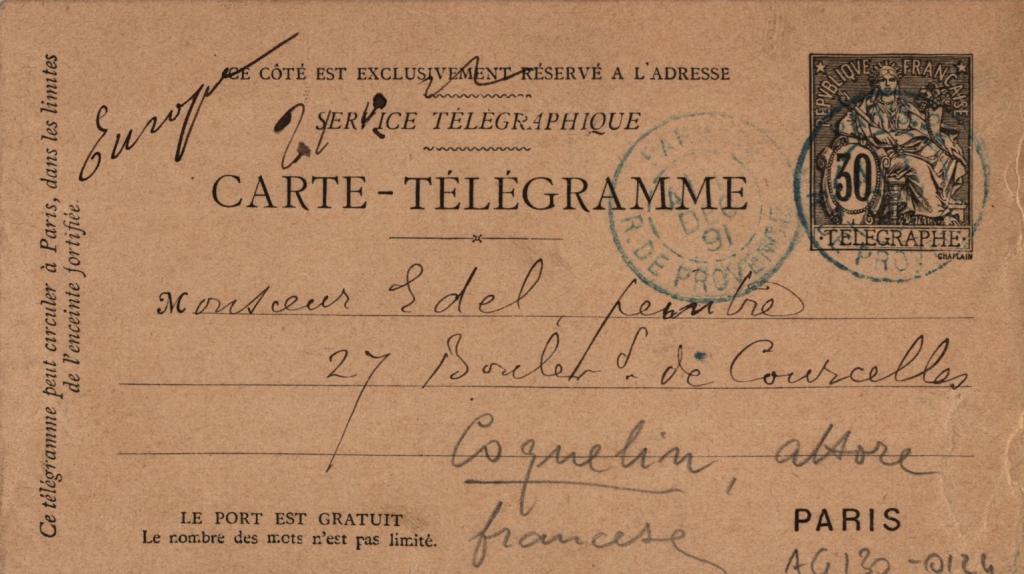 CE CÔTÉ EST EXCLUSIVEMENT RÉSERVÉ A L'ADRESSE
SERVICE TÉLÉGRAPHIQUE
CARTE-TÉLÉGRAMME
Europe
Ce télégramme peut circuler à Paris, dans les limites
de l'enceinte fortifiée.
REPUBLIQUE FRANÇAISE
30
TELEGRAPHE
CHAPLAIN
DEC
91
R. DE PROVENCE
PROV
Monsieur Edel, peintre
27 Boulevd. de Courcelles
Coquelin, attore
francese
LE PORT EST GRATUIT
Le nombre des mots n'est pas limité.
PARIS
AG130-0124